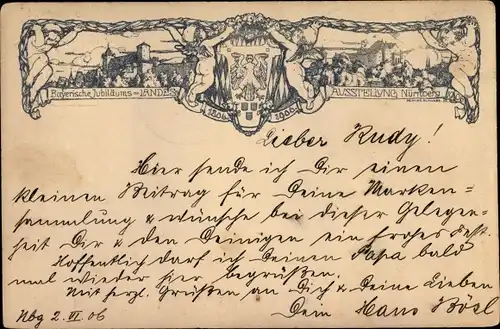 Bayerische Jubiläums-LANDES AUSSTELLUNG Nürnberg
1806 1906
Lieber Rudy!
Hier sende ich Dir einen
kleinen Beitrag für Deine Marken=
sammlung & wünsche bei dieser Gelegen=
heit Dir & den Deinigen ein frohes Fest.
Hoffentlich darf ich Deinen Papa bald
mal wieder hier begrüßen.
Mit herzl. Grüßen an Dich & Deine Lieben
Nbg 2. VI 06 Dein Hans Bösl